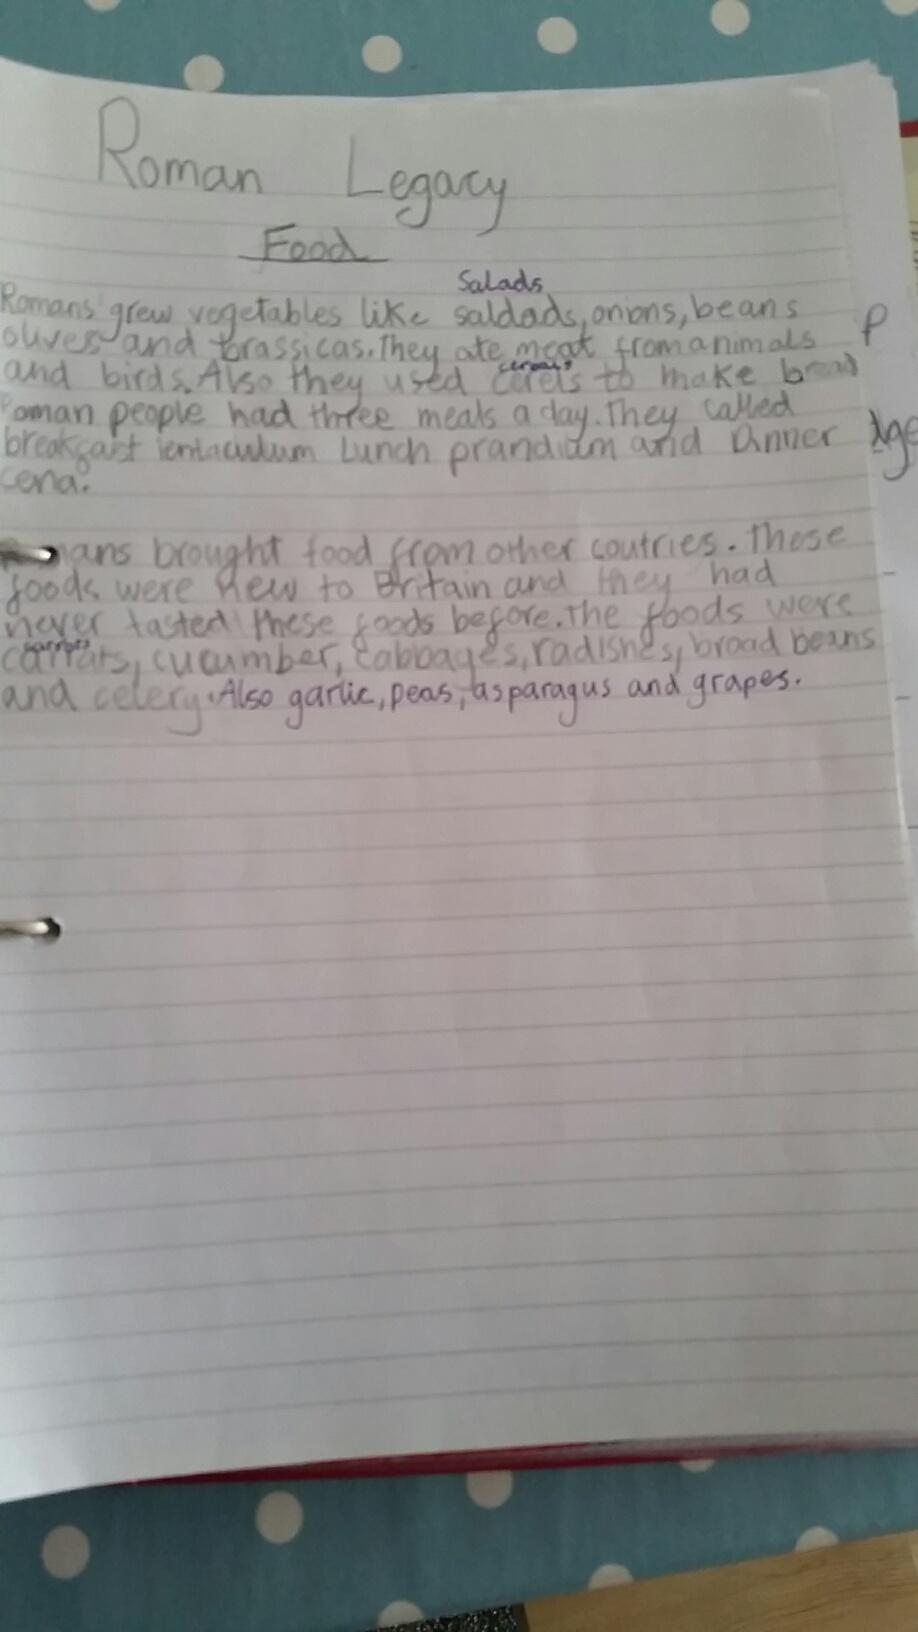 Roman Legacy
Food
Salads
Romans grew vegetables like saldads, onions, beans
olives and brassicas. They ate meat from animals
cereals
and birds. Also they used cerels to make bread
oman people had three meals a day. They called
breakfast ientaculum Lunch prandium and Dinner
cena.
ans brought food from other coutries. These
foods were new to Britain and they had
never tasted these foods before. The foods were
carrots
carrats, cucumber, cabbages, radishes, broad beans
and celery. Also garlic, peas, asparagus and grapes.